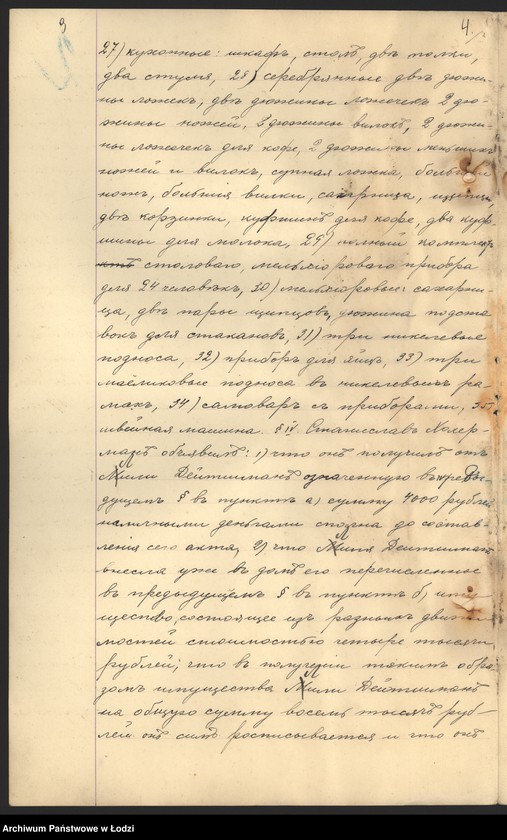 3
4.
27) кухонные: шкафъ, столъ, двѣ полки,
два стула, 28) серебрянные двѣ дюжи-
ны ложекъ, двѣ дюжины ложечекъ 2 дю-
жины ножей, 2 дюжины вилокъ, 2 дюжи-
ны ложечекъ для кофе, 2 дюжины меньшихъ
ножей и вилокъ, супная ложка, большiй
ножъ, большiя вилки, сахарница, щипцы,
двѣ корзинки, кувшинъ для кофе, два кув-
шины для молока, 29) полный комплектъ
столоваго, мельхiороваго прибора
для 24 человѣкъ, 30) мельхiоровые: сахарни-
ца, двѣ пары щипцовъ, дюжина подста
вокъ для стакановъ, 31) три никелевые
подноса, 32) приборъ для яицъ, 33) три
маiоликовые подноса въ никелевыхъ ра
махъ, 34) самоваръ съ приборами, 35)
швейная машина. § IV. Станиславъ
объявилъ: 1) что онъ получилъ отъ
Мили Дейтшманъ означенную въ преды-
дущемъ § въ пунктѣ а) сумму 4000 рублей
наличными деньгами сполна до состав-
ленiя сего акта, 2) что Миля Дейтшманъ
внесла уже въ домъ его перечисленное
въ предыдущемъ § въ пунктѣ б) иму-
щество, состоящее изъ разныхъ движи
мостей стоимостью четыре тысячи
рублей; что въ полученiи такимъ обра
зомъ имущества Мили Дейтшманъ
на общую сумму восемь тысячъ руб-
лей онъ симъ росписывается и что онъ
Archiwum Państwowe w Łodzi